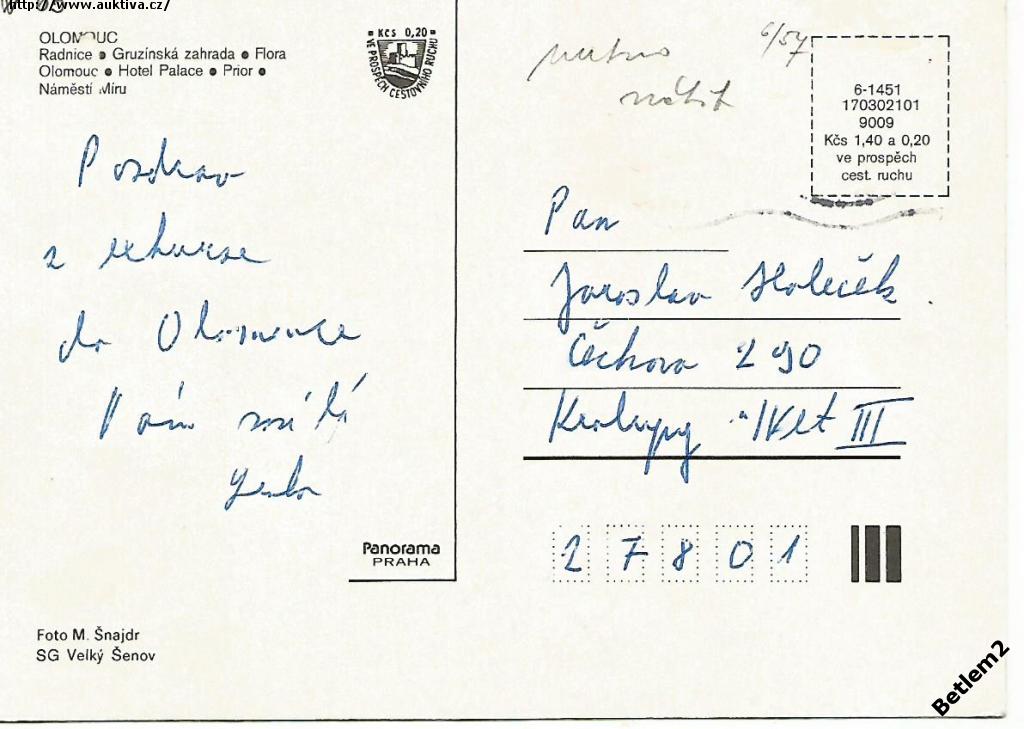 http://www.auktiva.cz/
OLOMOUC
Radnice ● Gruzínská zahrada ● Flora
Olomouc ● Hotel Palace ● Prior ●
Náměstí Míru
Kčs 0,20
VE PROSPĚCH CESTOVNÍHO RUCHU
6/57
6-1451
170302101
9009
Kčs 1,40 a 0,20
ve prospěch
cest. ruchu
Pozdrav
z exkurse
do Olomouce
Vám
Pan
Jaroslav Holeček
Čechova 290
Kralupy n/Vlt III
27801
Panorama
PRAHA
Foto M. Šnajdr
SG Velký Šenov
Betlem2